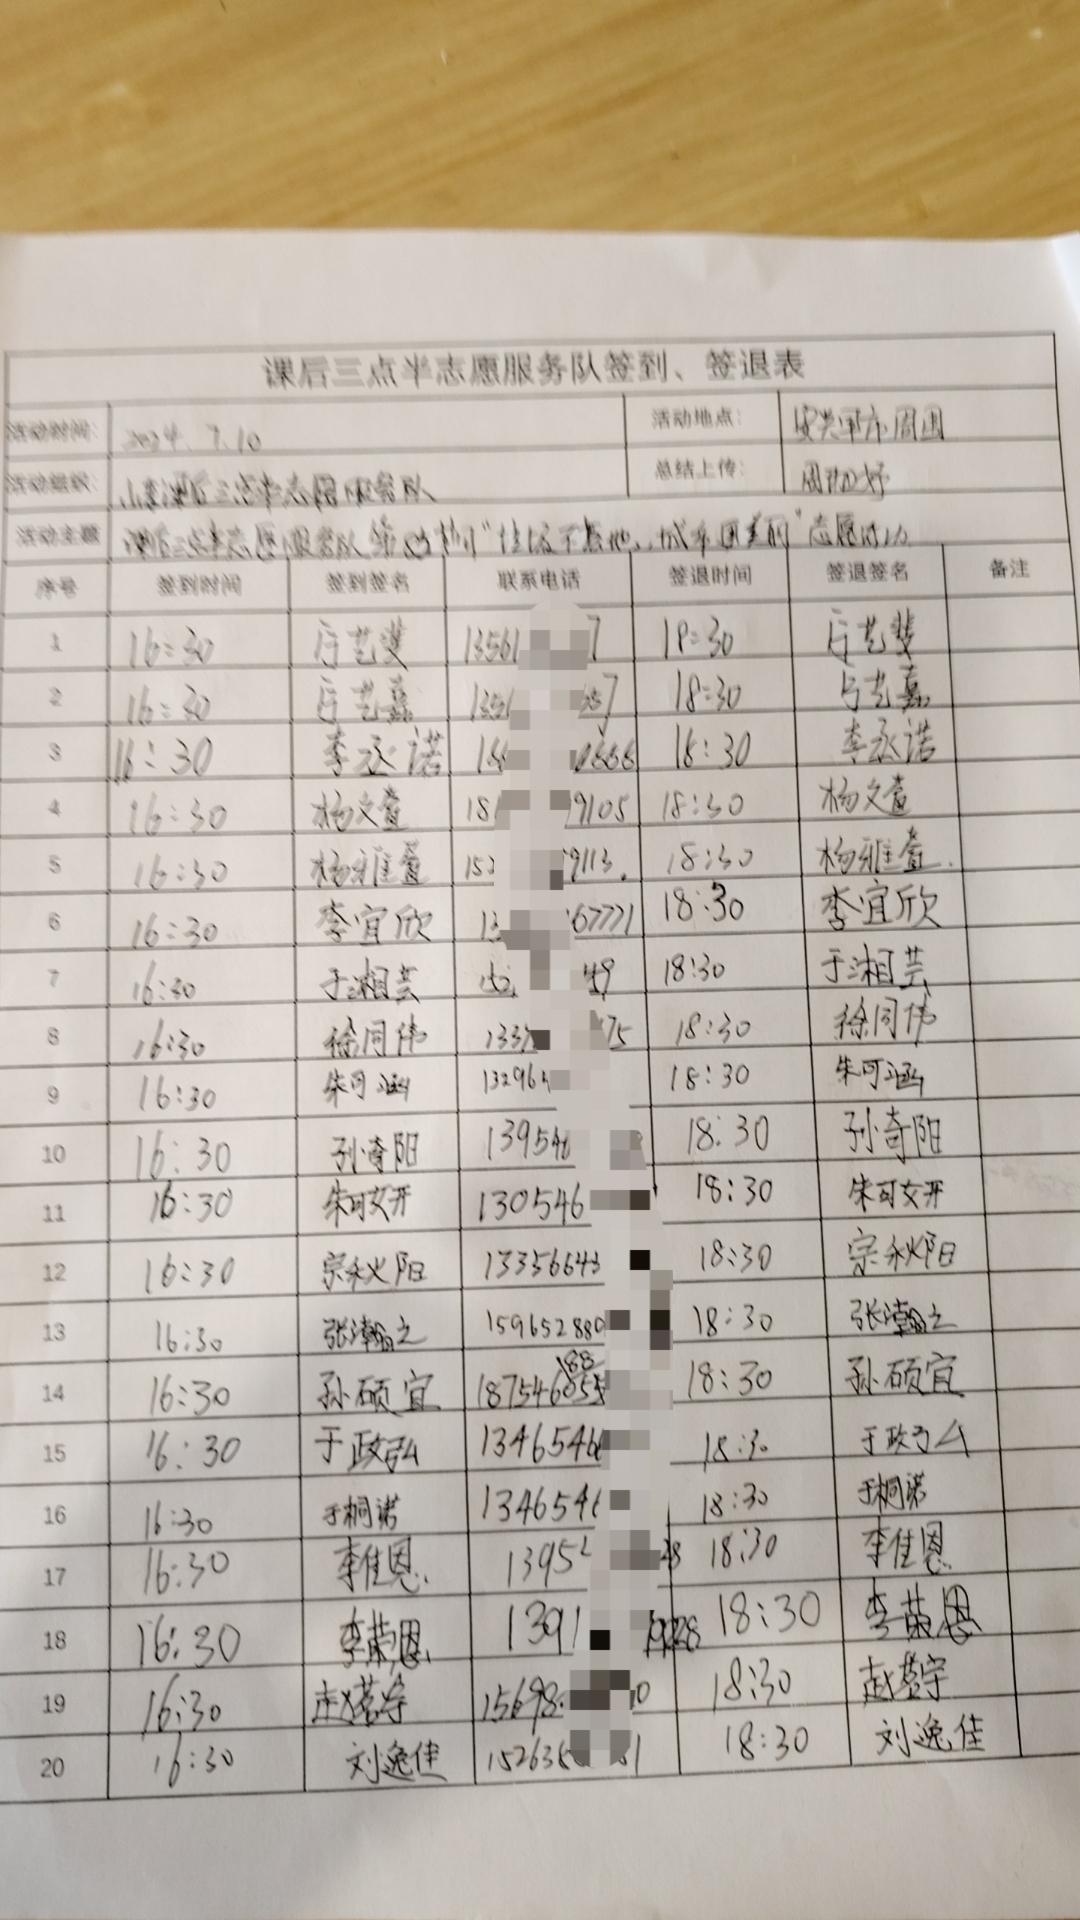 课后三点半志愿服务队签到、签退表
活动时间: 2024.7.10 活动地点: 安兴军市周围
活动组织: 山东课后三点半志愿服务队 总结上传:
活动主题 课后三点半志愿服务队 "垃圾不落地,城市更美丽"志愿活动
序号 签到时间 签到签名 联系电话 签退时间 签退签名 备注
1 16:30 艺斐 13561 7 18:30 艺斐
2 16:30 艺嘉 1356 7 18:30 艺嘉
3 16:30 李丞诺 18:30 李丞诺
4 16:30 杨文萱 18 9105 18:30 杨文萱
5 16:30 杨雅萱 152 9113. 18:30 杨雅萱.
6 16:30 李宜欣 13 67771 18:30 李宜欣
7 16:30 于湘芸 49 18:30 于湘芸
8 16:30 徐同伟 133 75 18:30 徐同伟
9 16:30 朱可涵 13296 18:30 朱可涵
10 16:30 孙奇阳 13954 18:30 孙奇阳
11 16:30 朱可妍 130546 18:30 朱可妍
12 16:30 宗秋阳 13356643 18:30 宗秋阳
13 16:30 张瀚之 159652880 18:30 张瀚之
14 16:30 孙硕宜 187546 188 18:30 孙硕宜
15 16:30 于政弘 1346546 18:30 于政弘
16 16:30 于桐诺 134654 18:30 于桐诺
17 16:30 李佳恩 1395 28 18:30 李佳恩
18 16:30 李荣恩 1391 18:30 李荣恩
19 16:30 赵茗宇 15698 0 18:30 赵茗宇
20 16:30 刘逸佳 15263 1 18:30 刘逸佳